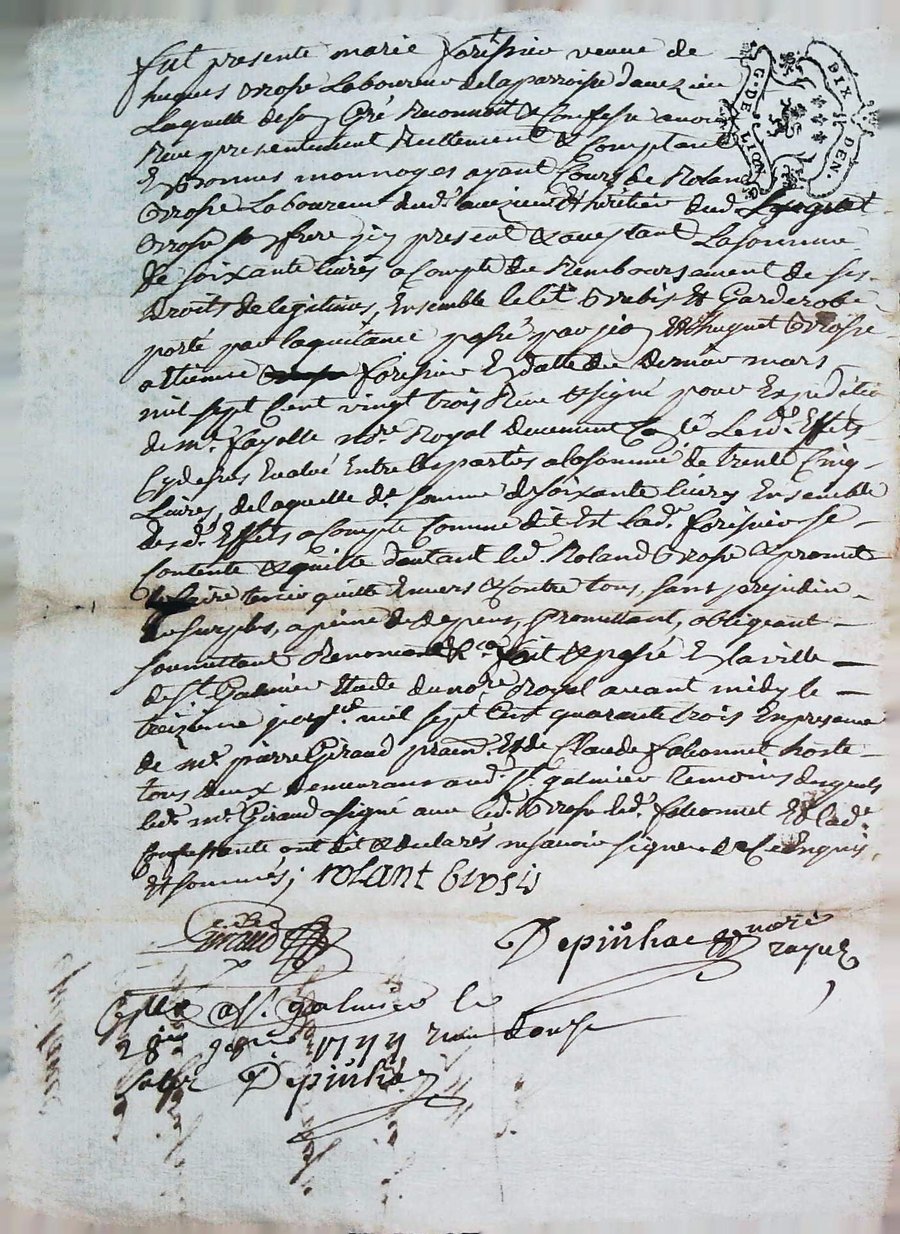 fut presente marie forissier veuve de
hugues Grosse Laboureur de la parroisse daveizieu
Laquelle de son Gré Reconnoit & Confesse avoir
Reçu presentement Reellement & Comptant
En bonnes monnoyes ayant Cours de Roland
Grosse Laboureur dud. aveizieu & héritier dud
Grosse son frere icy present & acceptant La somme
de soixante livres a Compte du Remboursement de ses
Droits de legitimes, Ensemble le lit Grabis & Garderobe
porté par la quitance passé par jean & huguet Grosse
a etienne forissier En datte du dernier mars
mil sept Cent vingt trois Reçu & signé pour Expedition
de me. fayolle nore Royal duement Les d. Effets
Cy dessus Evalué Entre les parties a la somme de trente Cinq
Livres, de laquelle de. somme de soixante livres Ensemble
des d. Effets a Compte Comme dit Est lad. forissier se
Contente & quitte d'autant led. Roland Grosse & promet
faire tenir quitte Envers & Contre tous, sans prejudice
du surplus, a peine de depens, promettant, obligeant
soumettant Renonceant &c. fait & passé En la ville
de St. Galmier Etude du nore Royal avant midy le
treizieme mil sept Cent quarante trois En presence
de me. pierre Giraud & de Claude falconnet hoste
tous deux demeurans aud. St. galmier temoins
led. me. Giraud a signé avec led. Grosse led. falconnet & lad.
Confessante ont dit & declarés ne savoir signer de Ce Enquis
& sommés; rolant Grosis
Giraud
Depinhac nore
royal
a St. galmier le
1744
Depinhac
G. DE LION
DIX DEN.